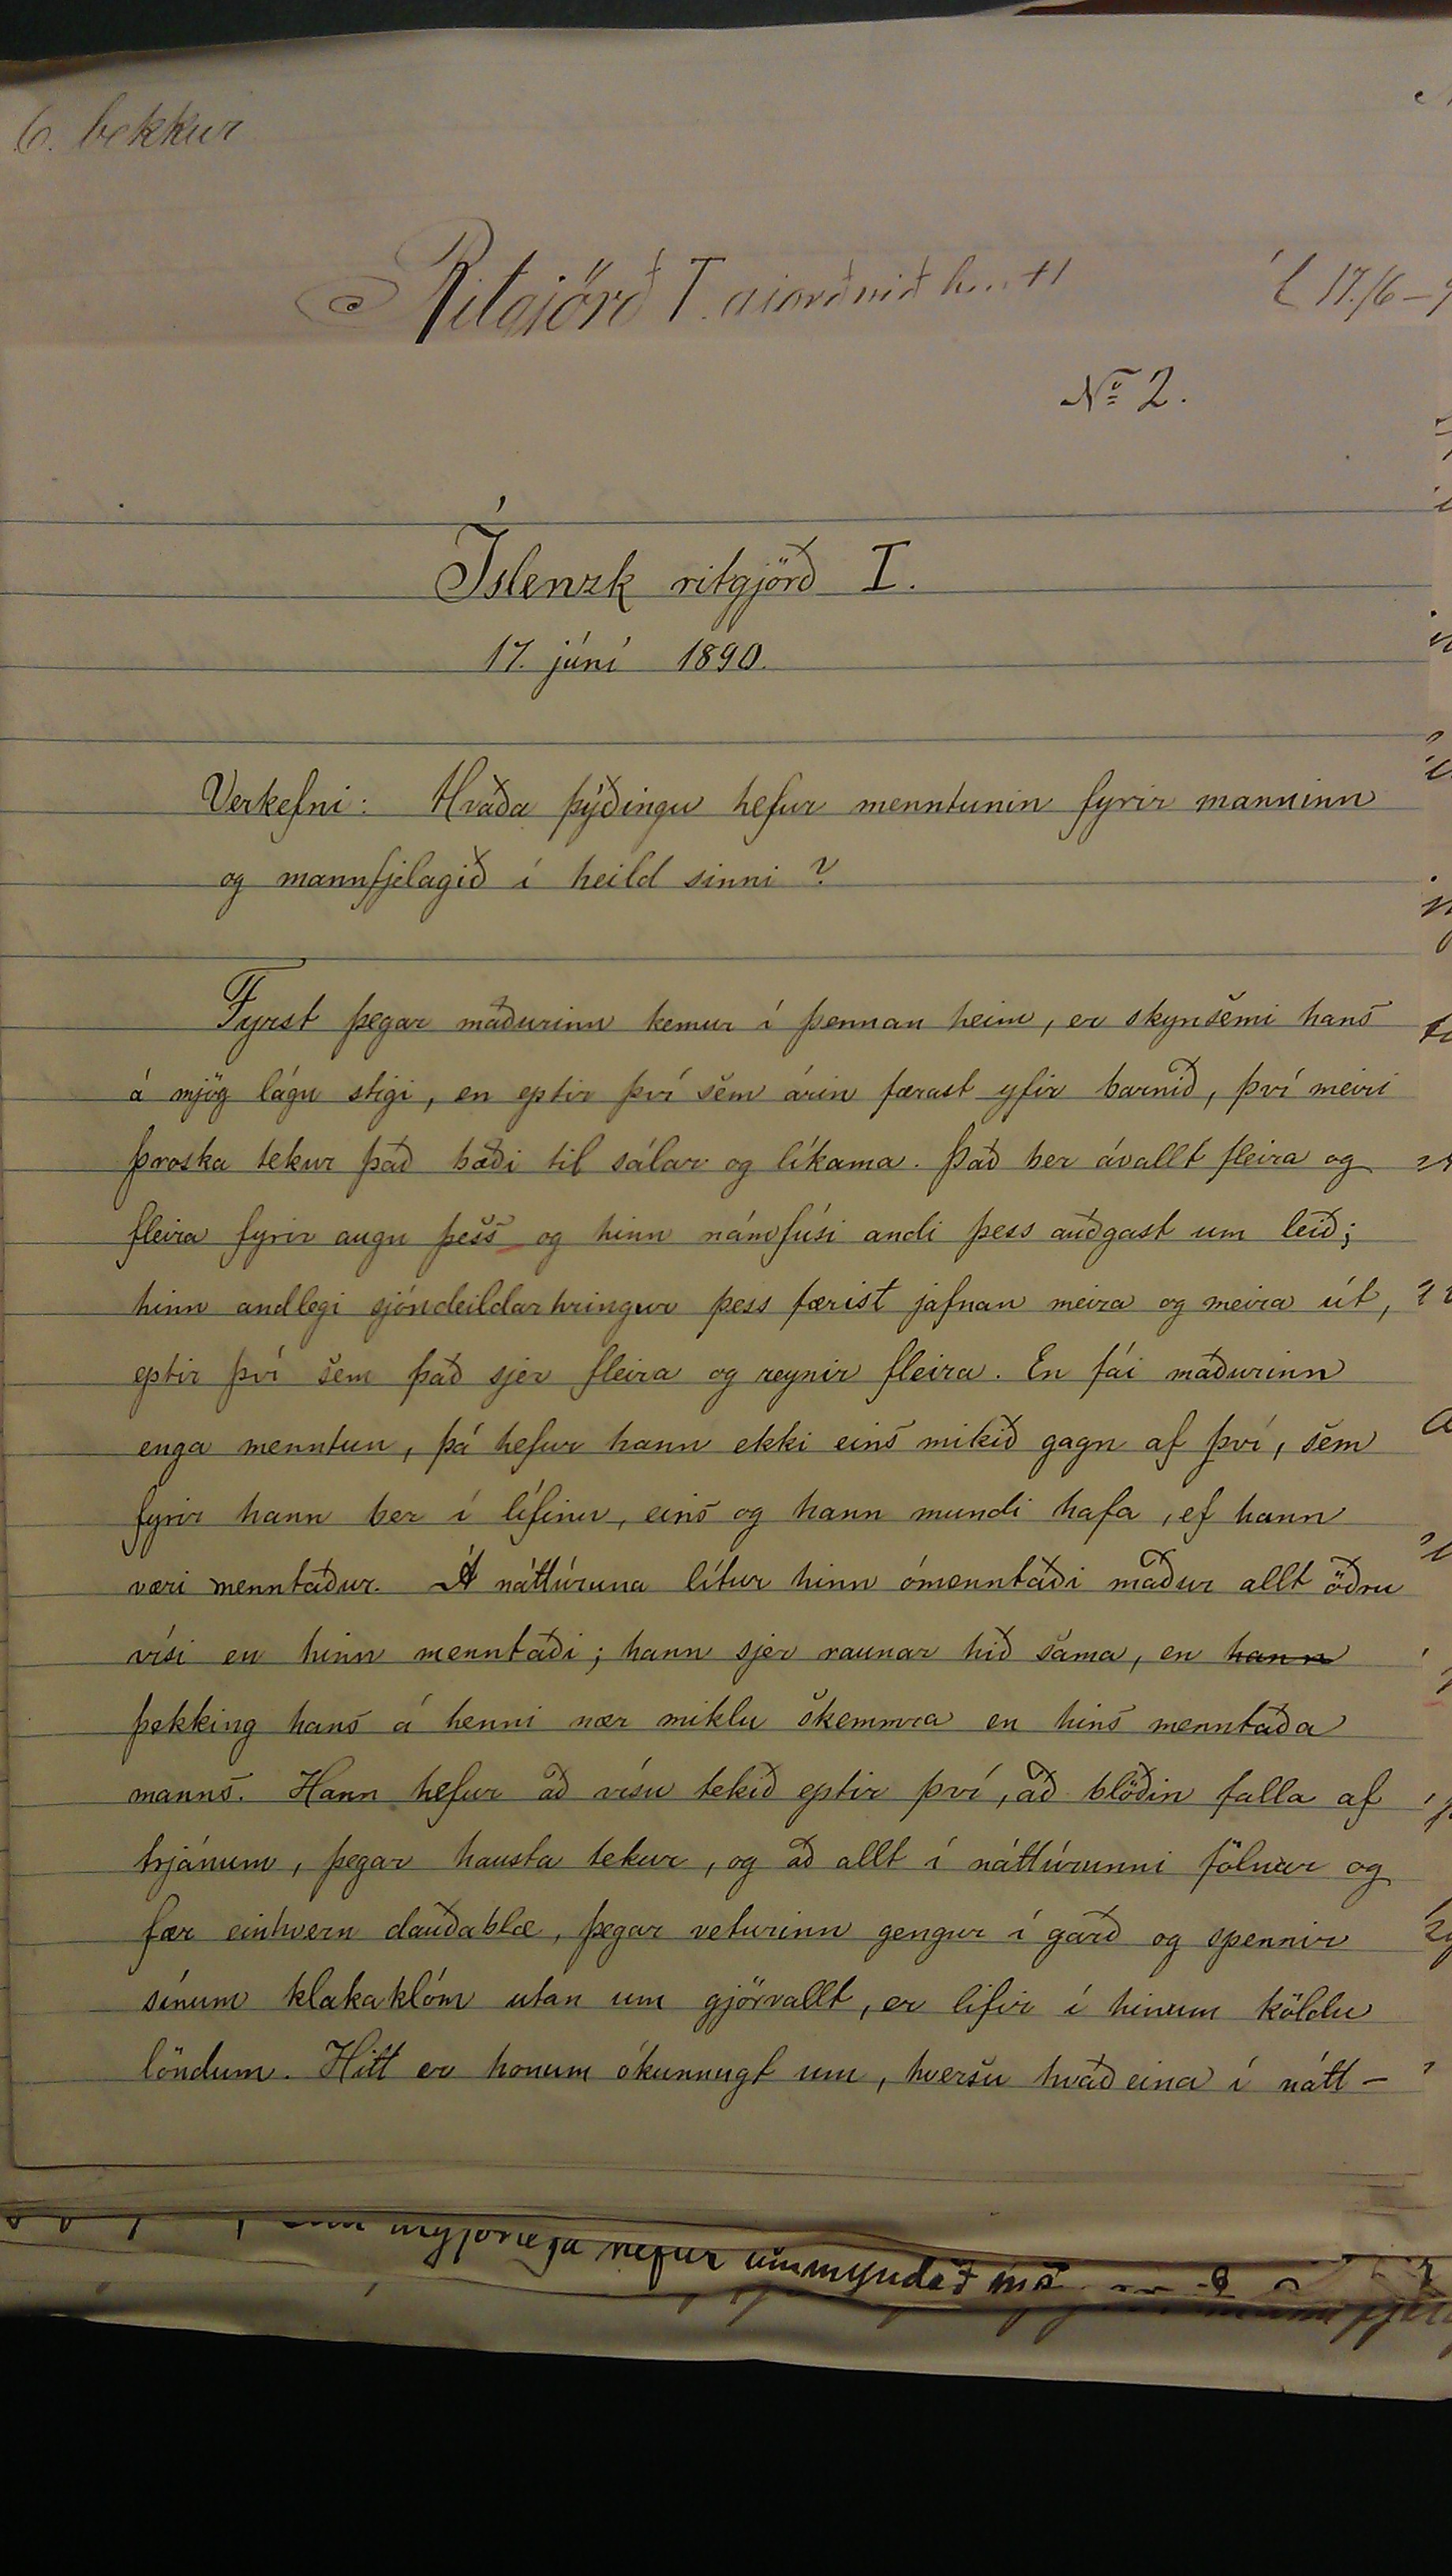 6. bekkur
Ritgjörð I.
17./6
No 2.
Íslenzk ritgjörð I.
17. júní 1890.
Verkefni: Hvaða þýðingu hefur menntunin fyrir manninn
og mannfjelagið í heild sinni?
Fyrst þegar maðurinn kemur í þennan heim, er skynsemi hans
á mjög lágu stigi, en eptir því sem árin færast yfir barnið, því meiri
þroska tekur það bæði til sálar og líkama. Það ber ávallt fleira og
fleira fyrir augu þess og hinn námfúsi andi þess auðgast um leið;
hinn andlegi sjóndeildarhringur þess færist jafnan meira og meira út,
eptir því sem það sjer fleira og reynir fleira. En fái maðurinn
enga menntun, þá hefur hann ekki eins mikið gagn af því, sem
fyrir hann ber í lífinu, eins og hann mundi hafa, ef hann
væri menntaður. Á náttúruna lítur hinn ómenntaði maður allt öðru
vísi en hinn menntaði; hann sjer raunar hið sama, en hann
þekking hans á henni nær miklu skemmra en hins menntaða
manns. Hann hefur að vísu tekið eptir því, að blöðin falla af
trjánum, þegar hausta tekur, og að allt í náttúrunni fölnar og
fær einhvern dauðablæ, þegar veturinn gengur í garð og spennir
sínum klakaklóm utan um gjörvallt, er lifir í hinum köldu
löndum. Hitt er honum ókunnugt um, hversu hvað eina í nátt-
hefur ummyndað